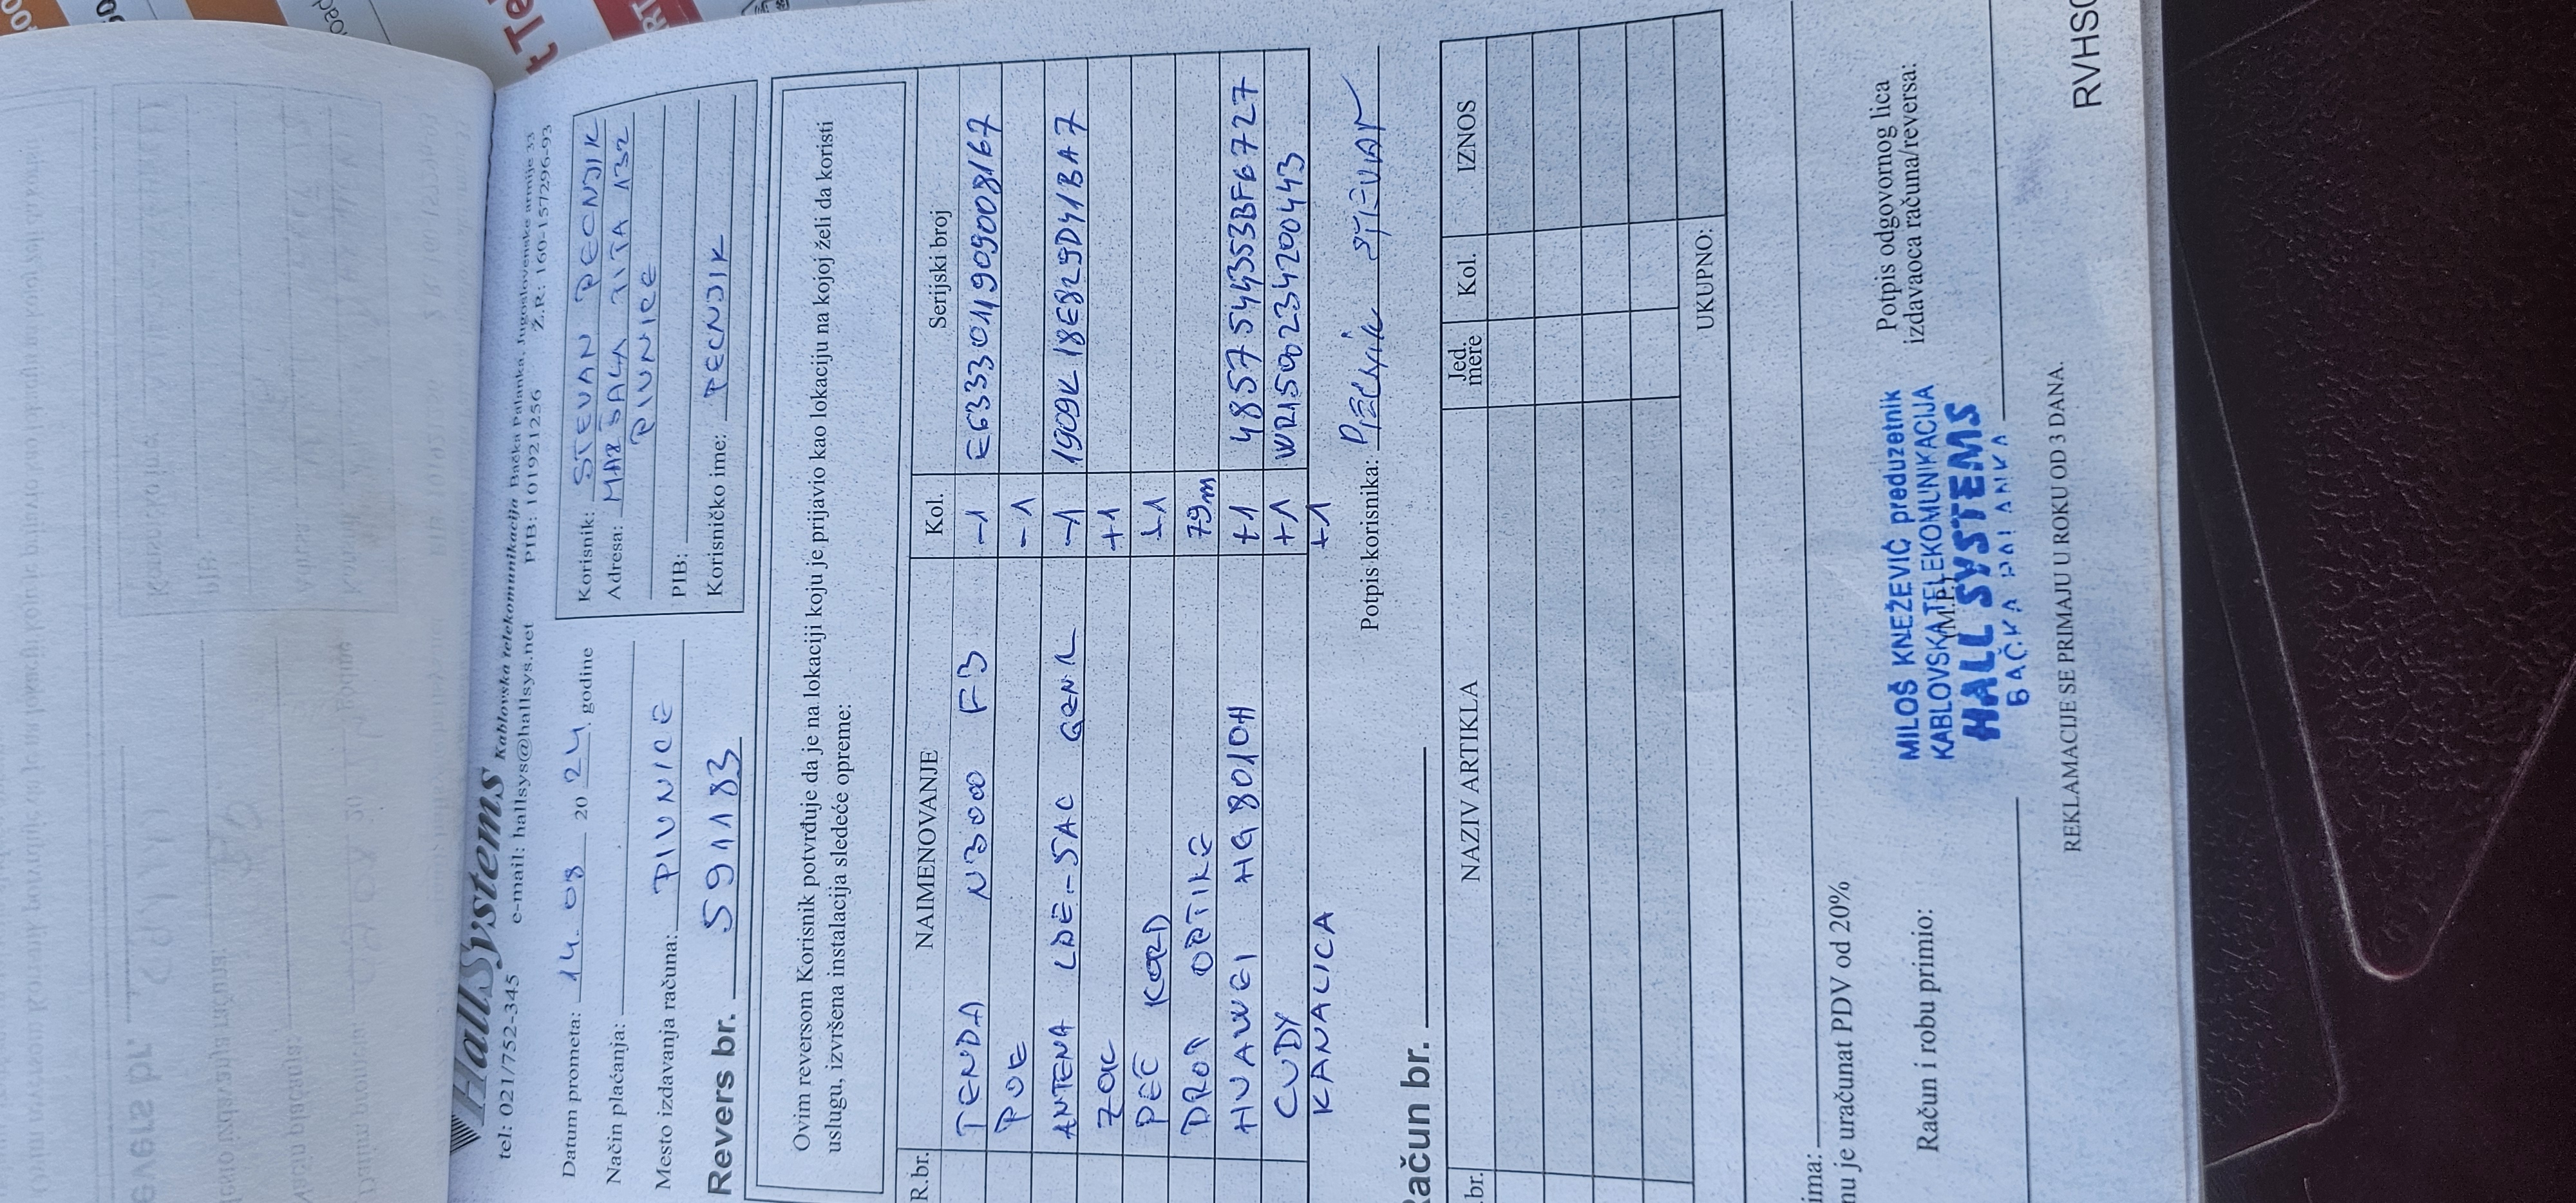 HallSystems Kablovska telekomunikacija Bačka Palanka, Jugoslovenske armije 33
tel: 021/752-345 e-mail: hallsys@hallsys.net PIB: 101921256 Ž.R: 160-157296-93
Datum prometa: 14. 08 2024. godine
Način plaćanja:
Mesto izdavanja računa: PIVNICE
Revers br. 591183
Korisnik: STEVAN PECNJIK
Adresa: MARŠALA TITA 132
PIVNICE
PIB:
Korisničko ime: PECNJIK
Ovim reversom Korisnik potvrđuje da je na lokaciji koju je prijavio kao lokaciju na kojoj želi da koristi
uslugu, izvršena instalacija sledeće opreme:
R.br. NAIMENOVANJE Kol. Serijski broj
TENDA N3000 F3 -1 E6333011909008167
POE -1
ANTENA LDE-5AC GEN2 -1 1909K18E829D41BA7
ZOK +1
PEČ KORD +1
DROP OPTIKE 79m
HUAWEI HG8010H +1 4857544353BF6727
CUDY +1 WR1500234200443
KANALICA +1
Potpis korisnika: Pecnjik Stevan
Račun br.
br. NAZIV ARTIKLA Jed. mere Kol. IZNOS
UKUPNO:
ima:
nu je uračunat PDV od 20%
Račun i robu primio:
Potpis odgovornog lica
izdavaoca računa/reversa:
MILOŠ KNEŽEVIĆ preduzetnik
KABLOVSKA TELEKOMUNIKACIJA
(M.P.)
HALL SYSTEMS
BAČKA PALANKA
REKLAMACIJE SE PRIMAJU U ROKU OD 3 DANA.
RVHS